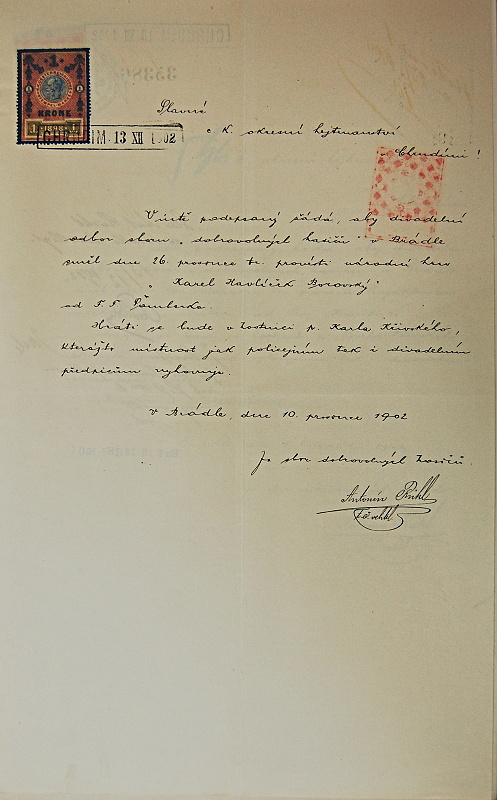 1
KRONE
1 1898 1
CHRUDIM 13 XII 1902
Slavné
c k okresní hejtmanství
v Chrudimi!
V úctě podepsaný žádá, aby divadelní
odbor sboru „dobrovolných hasičů" v Brádle
směl dne 26. prosince tr. provésti národní hru
„Karel Havlíček Borovský"
od F. F. Šamberka.
Hráti se bude v hostinci p. Karla Křivského,
kterážto místnost jak policejním tak i divadelním
předpisům vyhovuje.
v Brádle, dne 10. prosince 1902
Za sbor dobrovolných hasičů.
Antonín